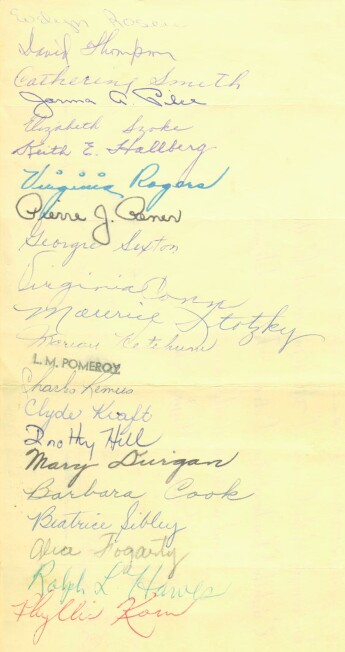 Evelyn
David Thompson
Catherine Smith
Elizabeth Szoke
Keith E. Hallberg
Virginia Rogers
Pierre J.
Georgre Sexton
Virginia Conn
Maurice Stotzky
Marian Ketchum
L. M. POMEROY.
Charles Remus
Clyde Kraft
Dorothy Hill
Mary Durgan
Barbara Cook
Beatrice Sibley
Fogarty
Ralph L. Hawes
Phyllis Korn